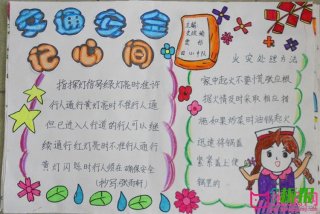 交通安全
记心间
指挥灯信号绿灯亮时准许
行人通行黄灯亮时不准行人通
但已进入人行道的行人可以继
续通行红灯亮时不准行人通行
黄灯闪烁时行人须在确保安全
火灾处理方法
家中起火不要慌张应根
据火情及时采取相应措
施如果炒菜时油锅起火
迅速将锅盖
紧紧盖上使
锅里的